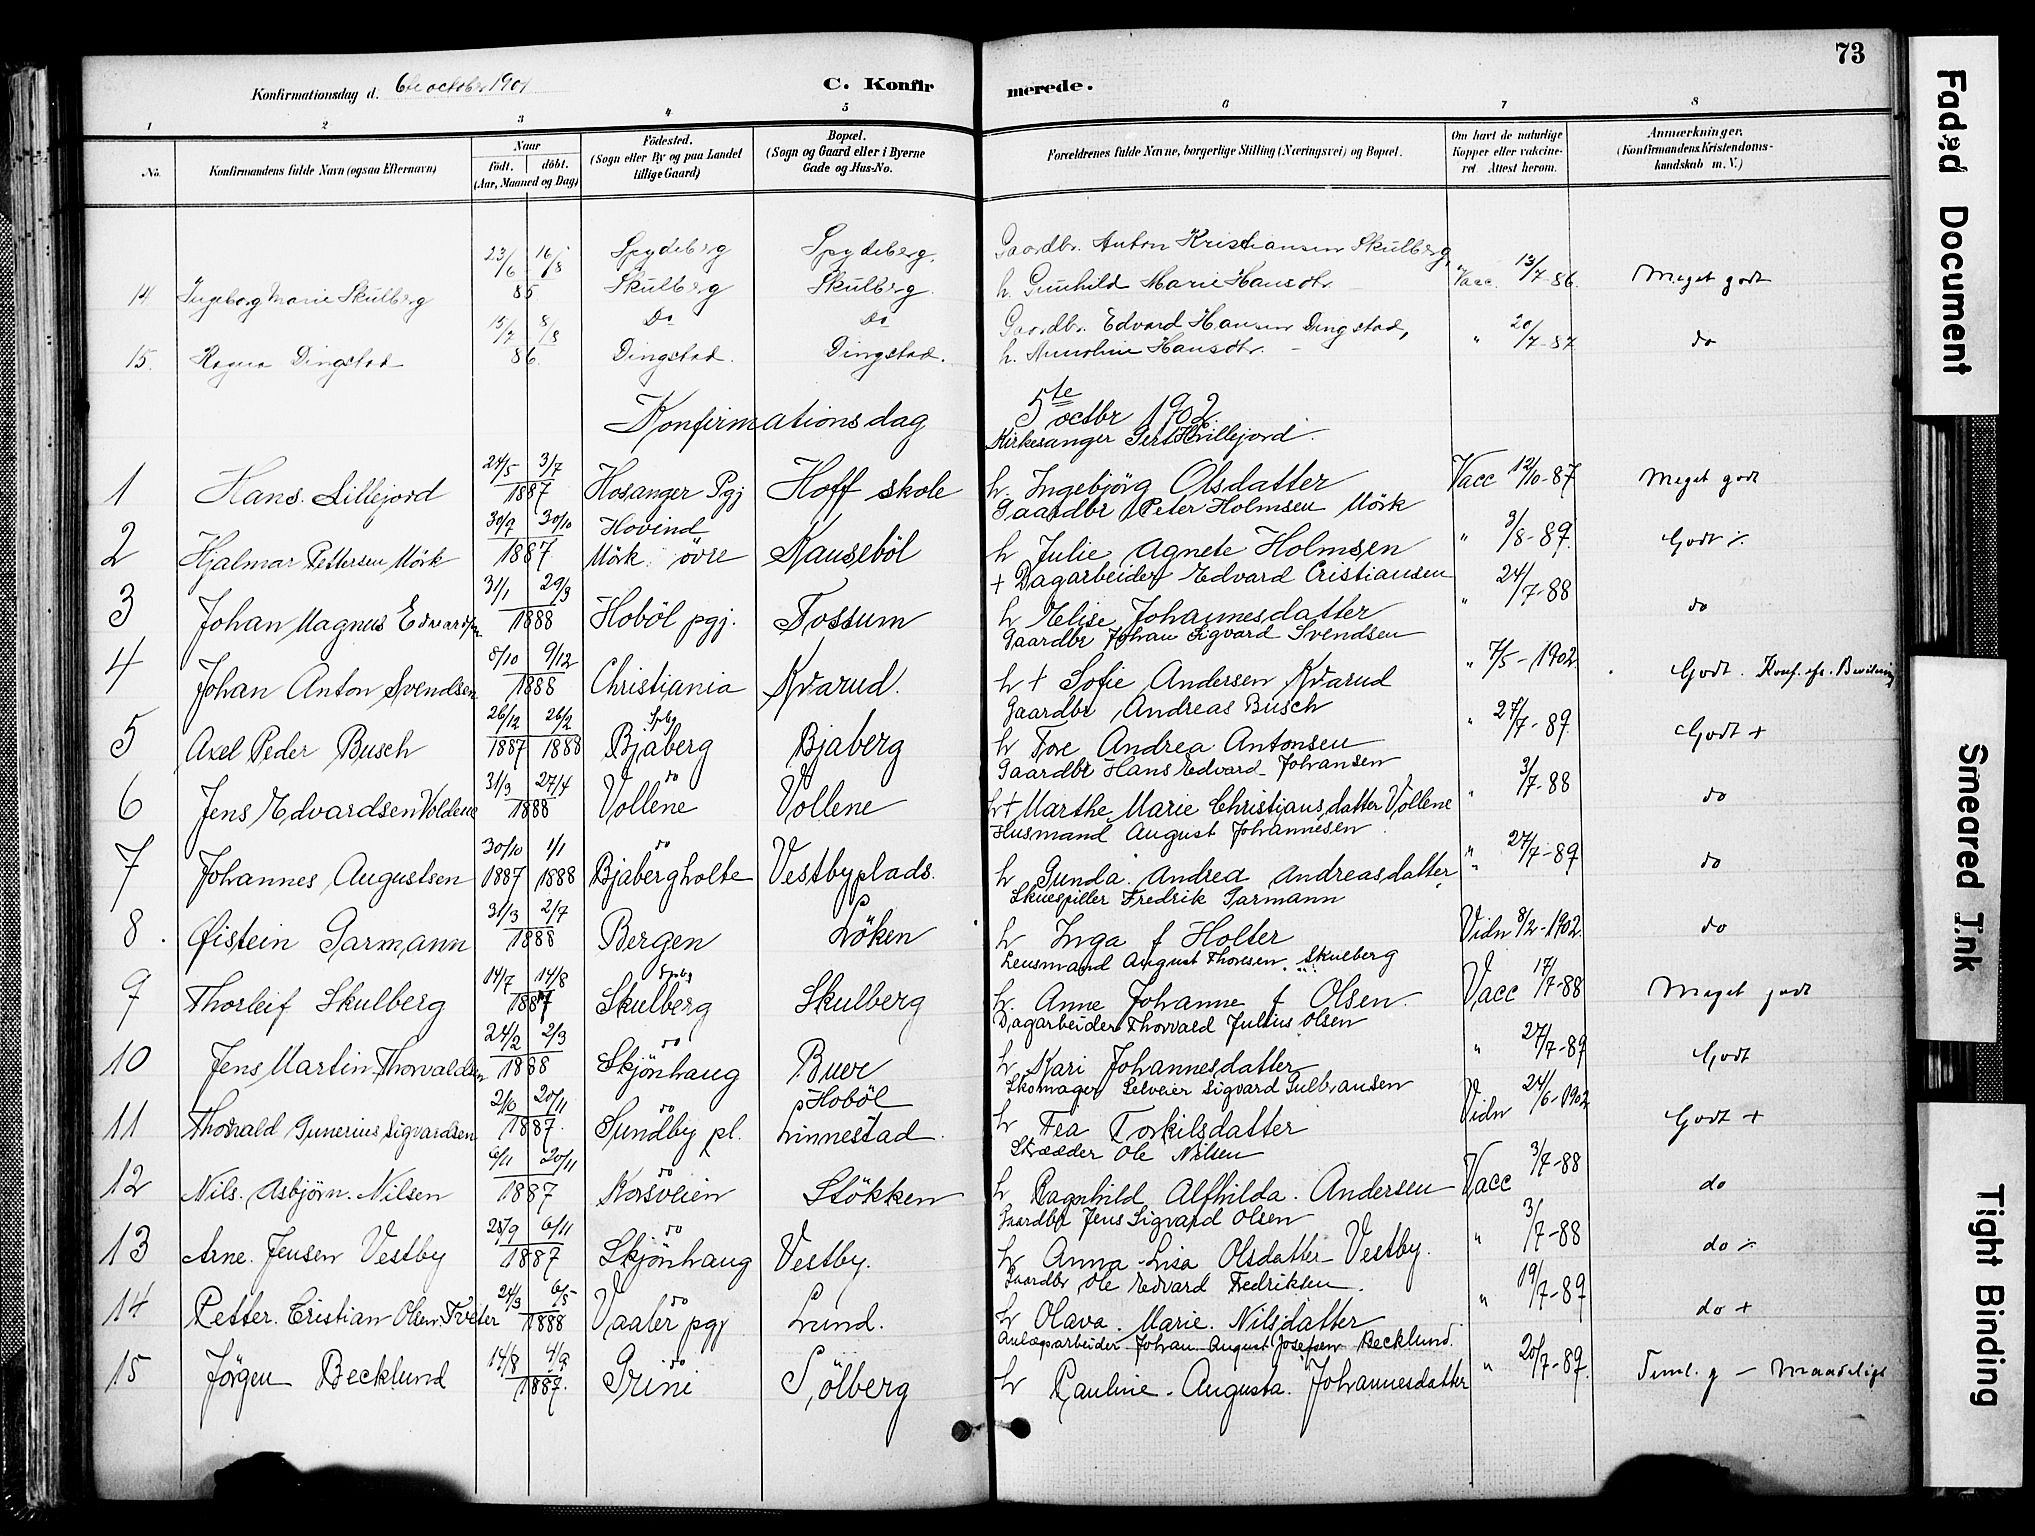 73
Konfirmationsdag d. 6te october 1901 C. Konfirmerede.
1 2 3 4 5 6 7 8
No. Konfirmandens fulde Navn (ogsaa Efternavn) Naar födt. döbt. (Aar, Maaned og Dag) Födested. (Sogn eller By og paa Landet tillige Gaard) Bopæl. (Sogn og Gaard eller i Byerne Gade og Hus-No. Forældrenes fulde Navne, borgerlige Stilling (Næringsvei) og Bopæl. Om havt de naturlige Kopper eller vakcineret Attest herom. Anmærkninger. (Konfirmandens Kristendomskundskab m. V.)
23/6 16/8 Spydeberg Spydeberg. Gaardbr. Anton Kristiansen Skulberg,
14 Ingeborg Marie Skulberg 85 Skulberg Skulberg. h. Gunhild Marie Hansdtr. Vacc. 13/7-86 Meget godt
15/7 8/8 Do Do Gaardbr. Edvard Hansen Dingstad,
15. Ragna Dingstad 86. Dingstad. Dingstad. h. Hansdtr. " 20/7-87 do
Konfirmationsdag 5te octbr 1902
Kirkesanger Gert H Lillejord.
1 Hans. Lillejord 24/5 3/7 1887 Hosanger Pgj Hoff skole h. Ingebjörg Olsdatter Vacc 12/10-87 Meget godt
Gaardbr Peter Holmsen Mörk
2 Hjalmar Pettersen Mörk 30/9 30/10 1887 Hovind Mörk övre Kauseböl h Julie Agnete Holmsen " 3/8-89. Godt ⁒
+ Dagarbeider Edvard Cristiansen
3 Johan Magnus Edvardsen 31/1 29/3 1888 Hoböl pgj. Fossum h Elise Johannesdatter " 24/7-88 do
Gaardbr Johan Sigvard Svendsen
4 Johan Anton Svendsen 8/10 9/12 1888 Christiania Kvarud. h + Sofie Andersen Kvarud " 7/5-1902 Godt. Konf. eft. Bevilling
Gaardbr Andreas Busch
5 Axel Peder Busch 26/12 1887 26/2 1888 Spbg Bjaberg Bjaberg h Tore Andrea Antonsen " 27/7-89. Godt +
Gaardbr Hans Edvard Johansen
6 Jens Edvardsen Voldene 31/3 27/4 1888 do Vollene Vollene h + Marthe Marie Christiansdatter Vollene " 3/7-88 do
Husmand August Johannesen
7 Johannes Augustsen 30/10 1887 1/1 1888 do Bjabergholte Vestbyplads. h Gunda Andrea Andreasdatter " 27/7-89 do
Skuespiller Fredrik Garmann
8. Øistein Garmann 31/3 2/7 1888 Bergen Löken h Inga f Holter Vidn 8/2-1902. do
Lensmand August Thoresen Skulberg
9 Thorleif Skulberg 14/7 14/8 1887 Spbg Skulberg Skulberg h. Anne Johanne f Olsen. Vacc 17/7-88 Meget godt
Dagarbeider Thorvald Julius Olsen
10 Jens Martin Thorvaldsen 24/2 2/3 1888 do Skjönhaug Buer h Kari Johannesdatter " 27/7-89 Godt
Skomager Selveier Sigvard Gulbransen
11 Thorvald Gunerius Sigvardsen 2/10 20/11 1887. do Sundby pl. Hoböl Linnestad. h Fia Torkilsdatter Vidn 24/6-1902 Godt +
Skrædder Ole Nilsen
12 Nils. Asbjørn. Nilsen 6/11 20/11 1887 do Korsveien Stökken h Ragnhild Alfhilda. Andersen Vacc 3/7-88 do
Gaardbr Jens Sigvard Olsen
13 Arne. Jensen Vestby 28/9 6/11 1887 do Skjönhaug Vestby. h Anna Lisa Olsdatter Vestby. " 3/7-88 do ⁒
Gaardbr Ole Edvard Fredriksen.
14 Petter. Cristian Olsen Tveter 24/3 6/5 1888 do Vaaler pgj Lund. h Olava. Marie. Nilsdatter " 19/7-89 do +
Anlægsarbeider Johan August Josefsen Becklund.
15 Jörgen Becklund 14/8 4/9 1887. do Grini Sölberg h Pauline. Augusta. Johannesdatter " 20/7-89. Teml. g – Maadeligt
Faded Document
Smeared Ink
Tight Binding